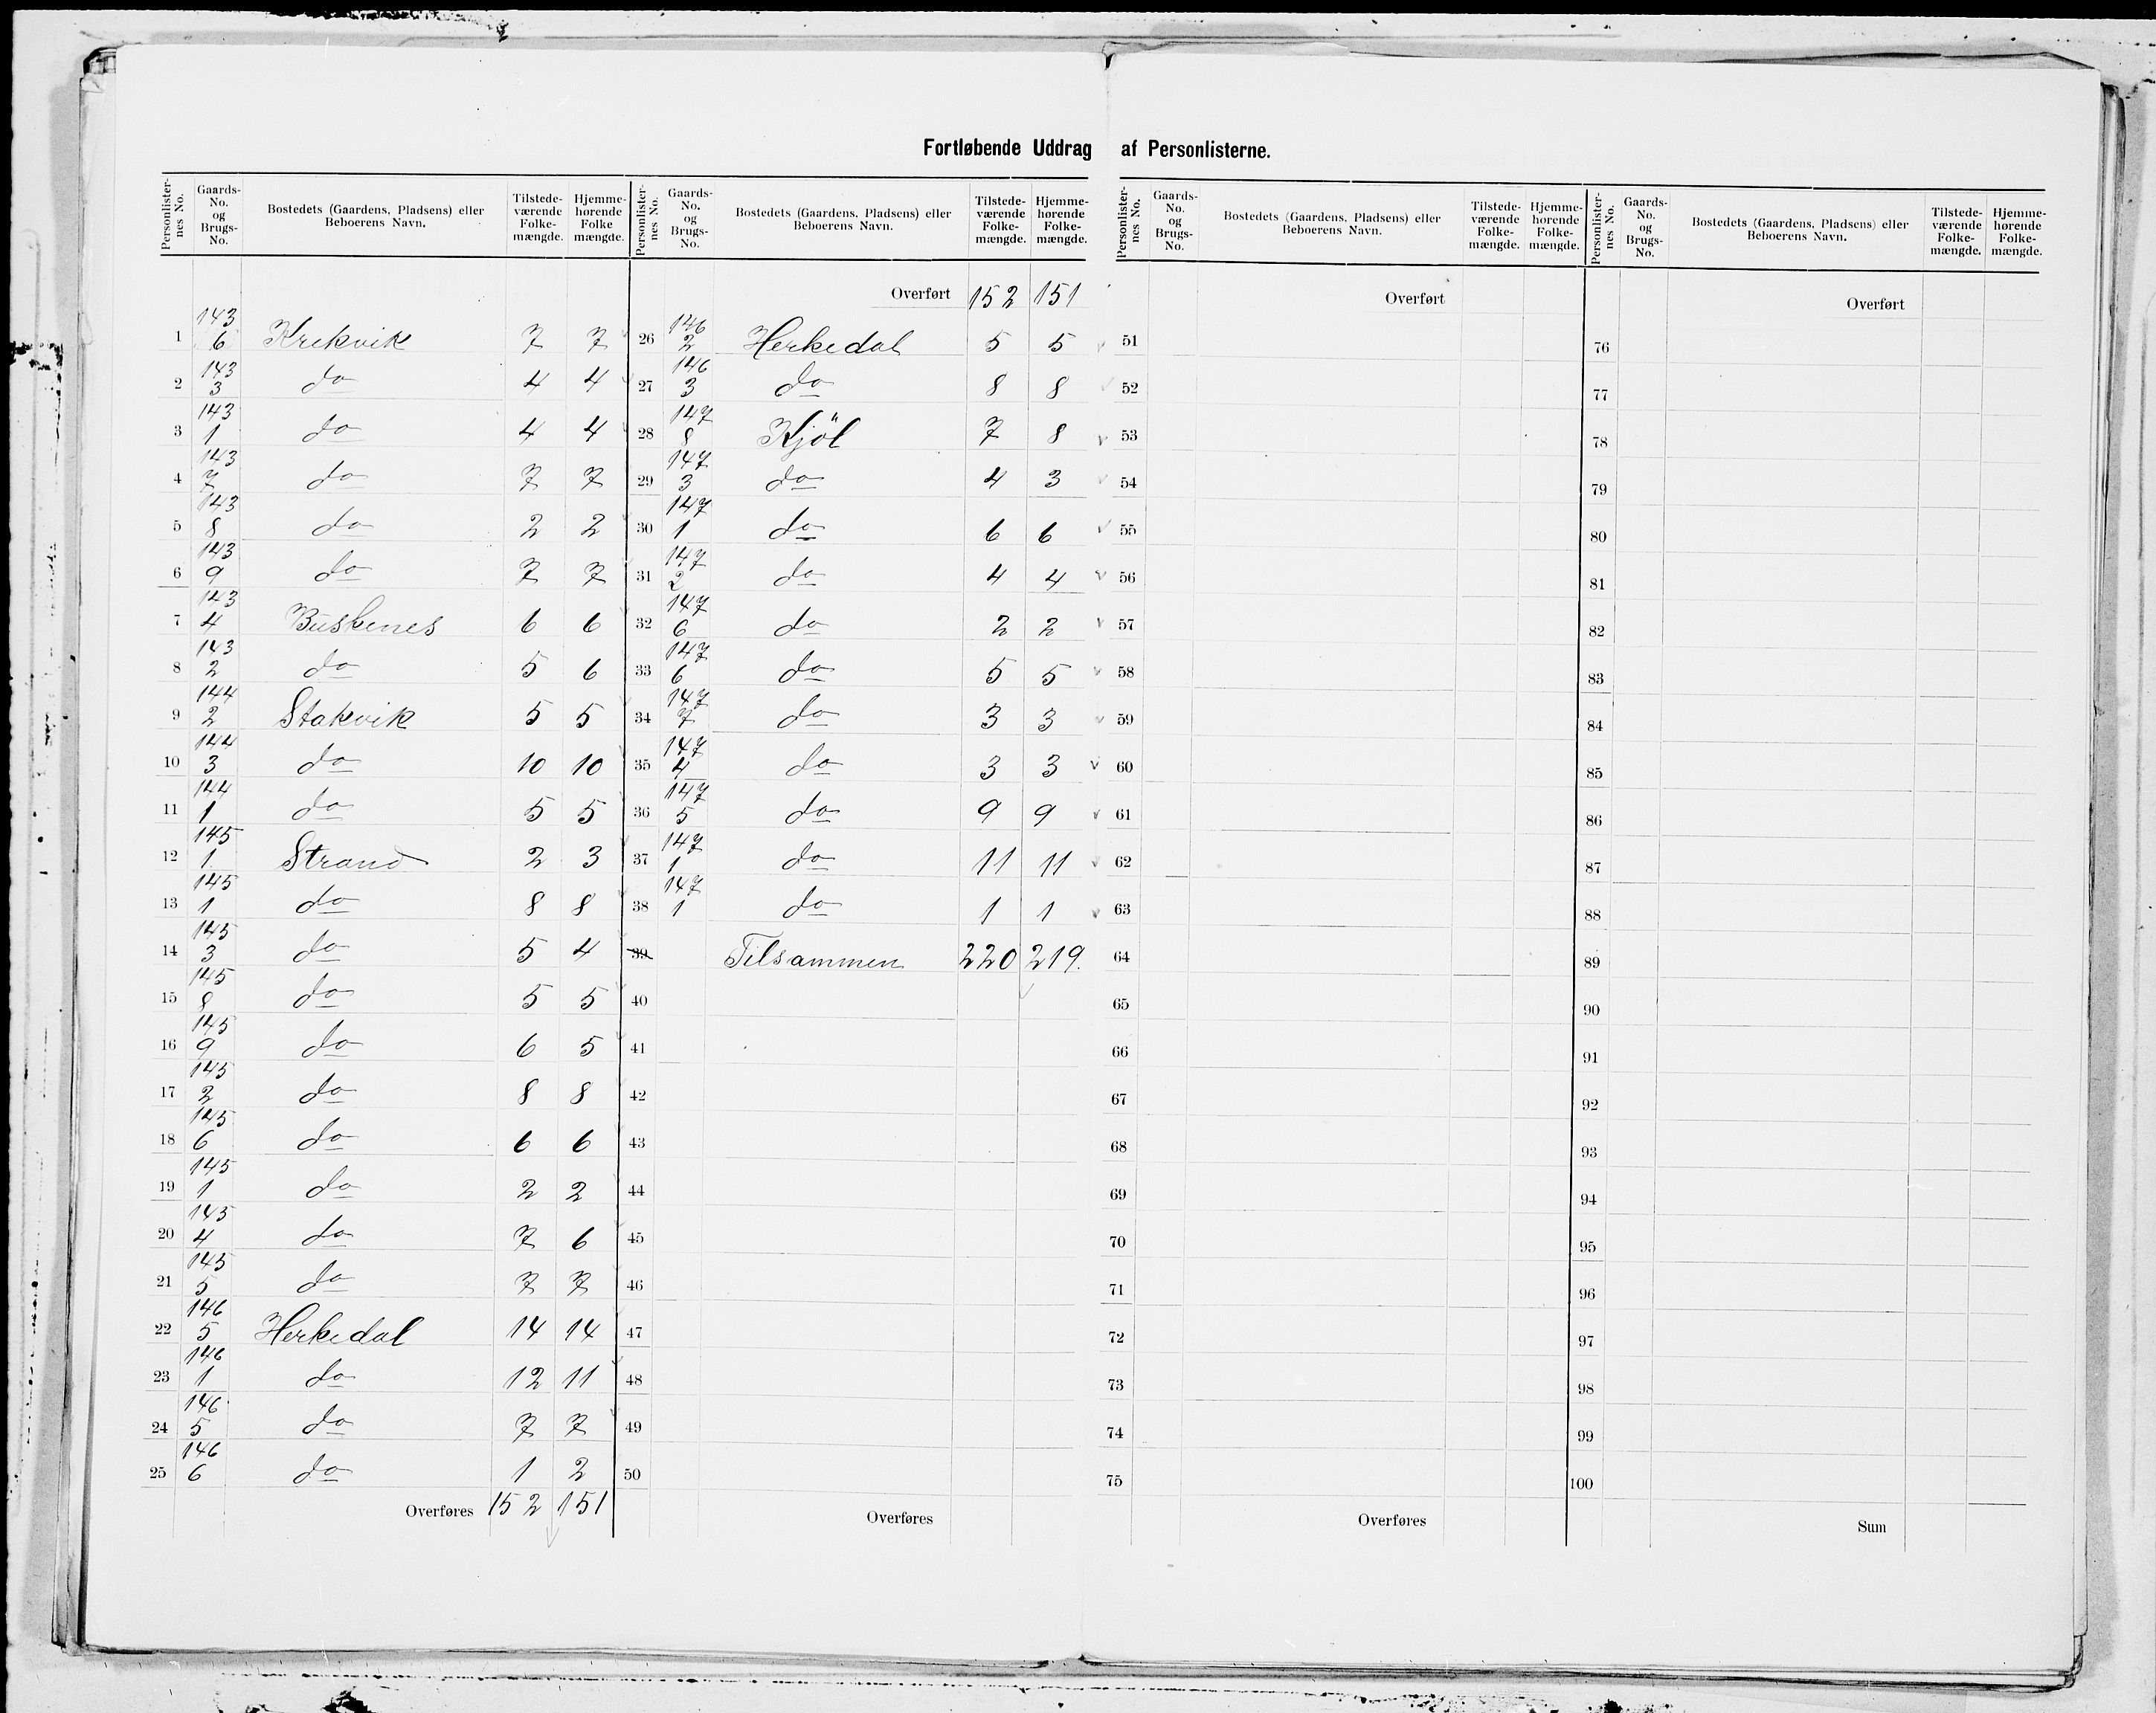 Fortløbende Uddrag af Personlisterne.
Personlisternes No. Gaards-No. og Brugs-No. Bostedets (Gaardens, Pladsens) eller Beboerens Navn. Tilstedeværende Folkemængde. Hjemmehørende Folkemængde.
1 143/6 Krekvik 7 7
2 143/3 do 4 4
3 143/1 do 4 4
4 143/7 do 7 7
5 143/8 do 2 2
6 143/9 do 7 7
7 143/4 Buskenes 6 6
8 143/2 do 5 6
9 144/2 Stakvik 5 5
10 144/3 do 10 10
11 144/1 do 5 5
12 145/1 Strand 2 3
13 145/1 do 8 8
14 145/3 do 5 4
15 145/8 do 5 5
16 145/9 do 6 5
17 145/2 do 8 8
18 145/6 do 6 6
19 145/1 do 2 2
20 145/4 do 7 6
21 145/5 do 7 7
22 146/5 Herkedal 14 14
23 146/1 do 12 11
24 146/5 do 7 7
25 146/6 do 1 2
Overføres 152 151
Personlisternes No. Gaards-No. og Brugs-No. Bostedets (Gaardens, Pladsens) eller Beboerens Navn. Tilstedeværende Folkemængde. Hjemmehørende Folkemængde.
Overført 152 151
26 146/2 Herkedal 5 5
27 146/3 do 8 8
28 147/8 Kjöl 7 8
29 147/3 do 4 3
30 147/1 do 6 6
31 147/2 do 4 4
32 147/6 do 2 2
33 147/6 do 5 5
34 147/7 do 3 3
35 147/4 do 3 3
36 147/5 do 9 9
37 147/1 do 11 11
38 147/1 do 1 1
39 Tilsammen 220 219.
40
41
42
43
44
45
46
47
48
49
50
Overføres
Personlisternes No. Gaards-No. og Brugs-No. Bostedets (Gaardens, Pladsens) eller Beboerens Navn. Tilstedeværende Folkemængde. Hjemmehørende Folkemængde.
Overført
51
52
53
54
55
56
57
58
59
60
61
62
63
64
65
66
67
68
69
70
71
72
73
74
75
Overføres
Personlisternes No. Gaards-No. og Brugs-No. Bostedets (Gaardens, Pladsens) eller Beboerens Navn. Tilstedeværende Folkemængde. Hjemmehørende Folkemængde.
Overført
76
77
78
79
80
81
82
83
84
85
86
87
88
89
90
91
92
93
94
95
96
97
98
99
100
Sum